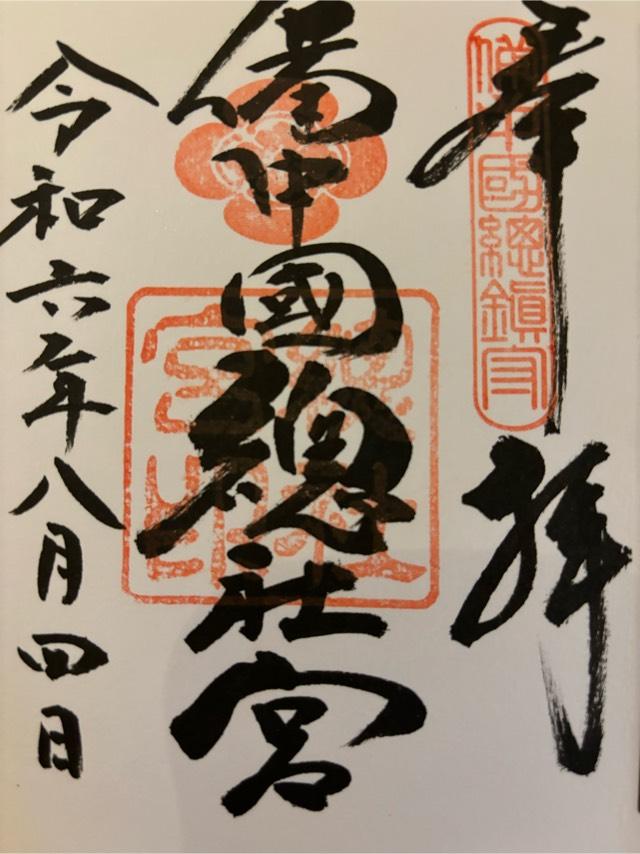 奉拝
備中國總鎮守
備中國總社宮
総社宮印
令和六年八月四日